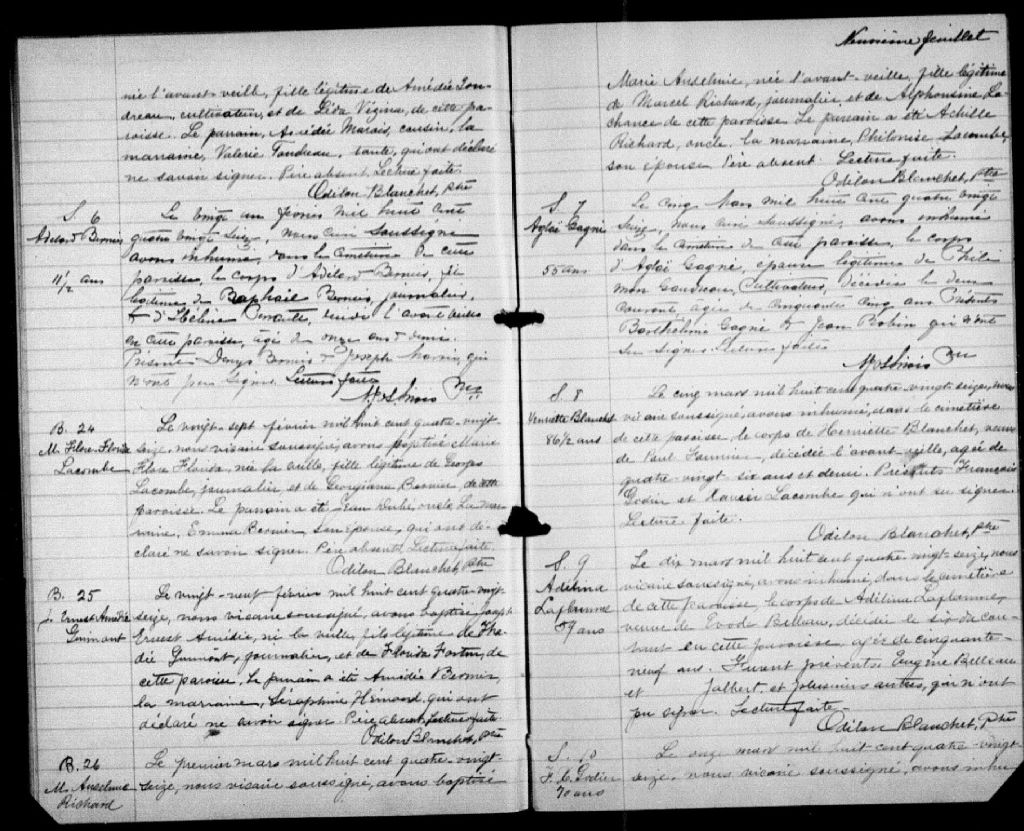 née l'avant veille, fille légitime de Amédée Ton-
dreau, cultivateur, et de Léda Vézina, de cette pa-
roisse. Le parrain, Amédée Marois, cousin, la
marraine, Valérie Tondreau, tante, qui ont déclaré
ne savoir signer. Père absent. Lecture faite.
Odilon Blanchet, Ptre
S. 6
Adélard Bernier
11 1/2 ans
Le vingt un février mil huit cent
quatre vingt seize, nous curé soussigné
avons inhumé, dans le cimetière de cette
paroisse, le corps d'Adélard Bernier, fils
légitime de Raphaël Bernier, journalier,
& d'Hélène, décédé l'avant veille
en cette paroisse, âgé de onze ans & demi.
Présents Denys Bernier & Joseph Morin, qui
n'ont pu signer. Lecture faite
Ptre
B. 24
M. Flore-Florida
Lacombe
Le vingt-sept février mil huit cent quatre-vingt-
seize, nous vicaire soussigné, avons baptisé Marie
Flore Florida, née la veille, fille légitime de Georges
Lacombe, journalier et de Georgiana Bernier, de cette
paroisse. Le parrain a été Jean Dubé, oncle. La mar-
raine, Emma Bernier son épouse, qui ont dé-
claré ne savoir signer. Père absent. Lecture faite.
Odilon Blanchet, Ptre
B. 25
J. Ernest Amédée
Guimont
Le vingt-neuf février mil huit cent quatre-vingt-
seize, nous vicaire soussigné, avons baptisé Joseph
Ernest Amédée, né la veille, fils légitime de Tha-
dée Guimont, journalier, et de Florida Fortin, de
cette paroisse. Le parrain a été Amédée Bernier,
la marraine, Séraphine Hémond, qui ont
déclaré ne savoir signer. Père absent. Lecture faite
Odilon Blanchet, Ptre
B. 26
M. Anselmie
Richard
Le premier mars mil huit cent quatre-vingt-
seize, nous vicaire soussigné, avons baptisé
Neuvième feuillet
Marie Anselmie, née l'avant-veille, fille légitime
de Marcel Richard, journalier, et de Alphonsine La-
chance de cette paroisse. Le parrain a été Achille
Richard, oncle. La marraine, Philomène Lacombe,
son épouse. Père absent. Lecture faite.
Odilon Blanchet, Ptre
S. 7
Aglaé Gagné
55 ans
Le cinq Mars mil huit cent quatre vingt
seize, nous curé soussigné, avons inhumé
dans le cimetière de cette paroisse, le corps
d'Aglaé Gagné, épouse légitime de Phile-
mon Gaudreau, Cultivateur, décédée le deux
courant, âgée de cinquante cinq ans. Présents
Barthélemi Gagné & Jean Robin qui n'ont
su signer. Lecture faite
Ptre
S. 8
Henriette Blanchet
86 1/2 ans
Le cinq mars mil huit cent quatre-vingt-seize, nous
vicaire soussigné, avons inhumé, dans le cimetière
de cette paroisse le corps de Henriette Blanchet, veuve
de Paul Fournier, décédée l'avant-veille, agée de
quatre-vingt-six ans et demi. Présents François
Godin et Xavier Lacombe qui n'ont su signer.
Lecture faite.
Odilon Blanchet, Ptre
S. 9
Adélina
Laflamme
59 ans
Le dix mars mil huit cent quatre-vingt-seize, nous
vicaire soussigné, avons inhumé, dans le cimetière
de cette paroisse, le corps de Adéline Laflamme,
veuve de Evode Belleau, décédée le six du cou-
rant en cette paroisse, agée de cinquante-
neuf ans. Furent présents Eugène Belleau
et Jalbert et plusieurs autres, qui n'ont
pu signer. Lecture faite.
Odilon Blanchet, Ptre
S. 10
F. C. Godin
70 ans
Le onze mars mil huit-cent quatre-vingt-
seize, nous vicaire soussigné, avons inhu-